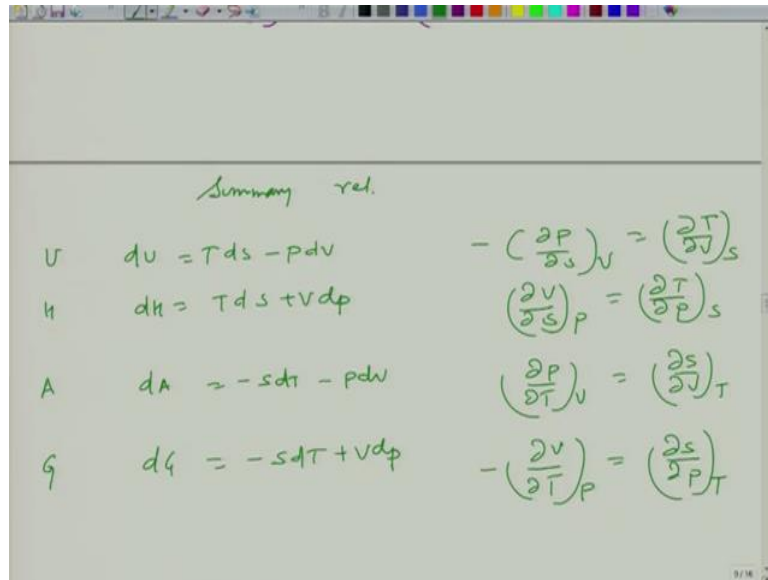 Summary rel.
U dU = Tds - pdV - (∂P/∂s)_V = (∂T/∂V)_S
H dH = Tds + Vdp (∂V/∂S)_P = (∂T/∂P)_S
A dA = -SdT - pdv (∂P/∂T)_V = (∂S/∂V)_T
G dG = -SdT + Vdp -(∂V/∂T)_P = (∂S/∂P)_T
9/16